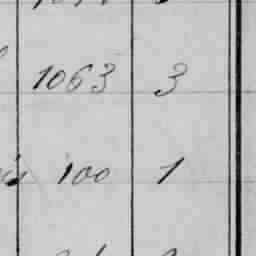 1063 3
100 1